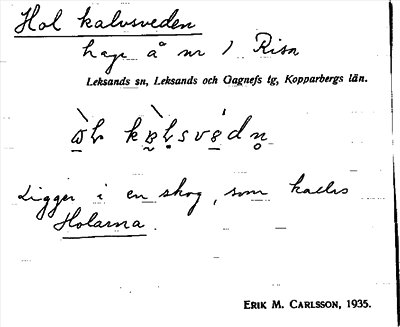 Hol kalvsveden
hage å nr 1 Risa
Leksands sn, Leksands och Gagnefs tg, Kopparbergs län.
Ligger i en skog, som kallas
Holarna.
ERIK M. CARLSSON, 1935.